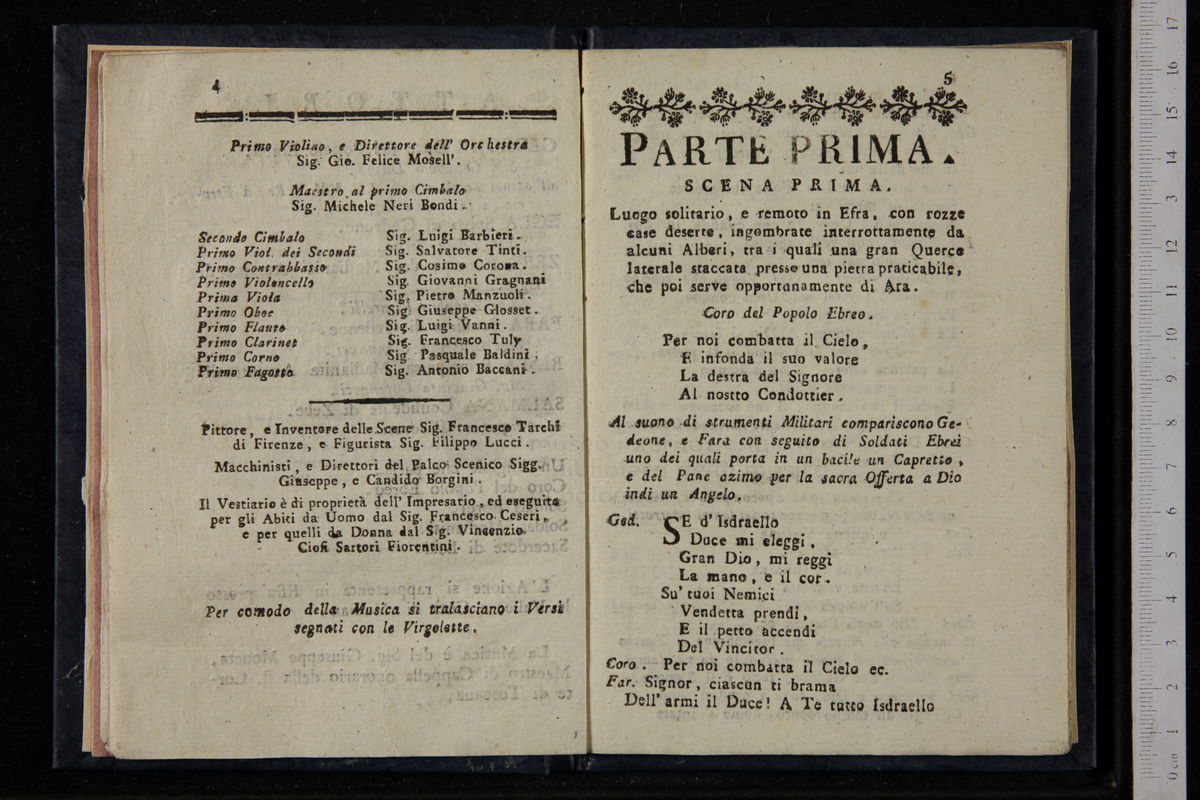 4
Primo Violino, e Direttore dell' Orchestra
Sig. Gio. Felice Mosell'.
Maestro al primo Cimbalo
Sig. Michele Neri Bondi.
Secondo Cimbalo Sig. Luigi Barbieri.
Primo Viol. dei Secondi Sig. Salvatore Tinti.
Primo Contrabbasso Sig. Cosimo Corona.
Primo Violoncello Sig. Giovanni Gragnani
Prima Viola Sig. Pietro Manzuoli.
Primo Oboe Sig. Giuseppe Closset.
Primo Flauto Sig. Luigi Vanni.
Primo Clarinet Sig. Francesco Tuly
Primo Corno Sig. Pasquale Baldini.
Primo Fagotto Sig. Antonio Baccani.
Pittore, e Inventore delle Scene Sig. Francesco Tarchi
di Firenze, e Figurista Sig. Filippo Lucci.
Macchinisti, e Direttori del Palco Scenico Sigg.
Giuseppe, e Candido Borgini.
Il Vestiario è di proprietà dell' Impresario, ed eseguito
per gli Abiti da Uomo dal Sig. Francesco Ceseri,
e per quelli da Donna dal Sig. Vincenzio
Ciofi Sartori Fiorentini.
Per comodo della Musica si tralasciano i Versi
segnati con le Virgolette.
5
PARTE PRIMA.
SCENA PRIMA.
Luogo solitario, e remoto in Efra, con rozze
case deserte, ingombrate interrottamente da
alcuni Alberi, tra i quali una gran Querce
laterale staccata presso una pietra praticabile,
che poi serve opportunamente di Ara.
Coro del Popolo Ebreo.
Per noi combatta il Cielo,
E infonda il suo valore
La destra del Signore
Al nostto Condottier.
Al suono di strumenti Militari compariscono Ge-
deone, e Fara con seguito di Soldati Ebrei
uno dei quali porta in un bacile un Capretto,
e del Pane azimo per la sacra Offerta a Dio
indi un Angelo.
Ged. SE d' Isdraello
Duce mi eleggi,
Gran Dio, mi reggi
La mano, e il cor.
Su' tuoi Nemici
Vendetta prendi,
E il petto accendi
Del Vincitor.
Coro. Per noi combatta il Cielo ec.
Far. Signor, ciascun ti brama
Dell' armi il Duce! A Te tutto Isdraello
0 cm 1 2 3 4 5 6 7 8 9 10 11 12 13 14 15 16 17